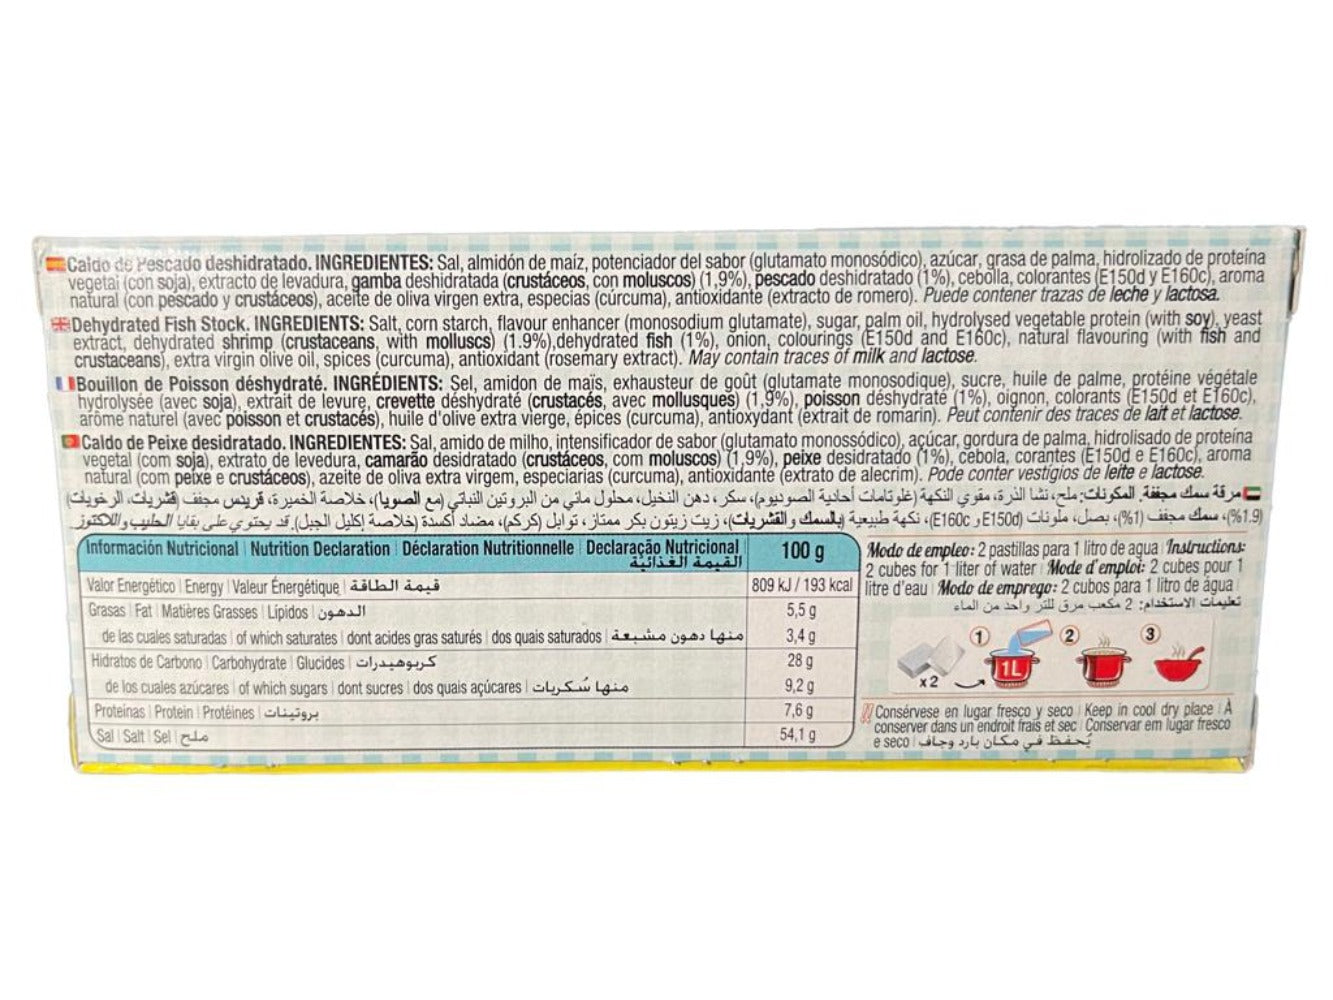 Caldo de Pescado deshidratado. INGREDIENTES: Sal, almidón de maíz, potenciador del sabor (glutamato monosódico), azúcar, grasa de palma, hidrolizado de proteína
vegetal (con soja), extracto de levadura, gamba deshidratada (crustáceos, con moluscos) (1,9%), pescado deshidratado (1%), cebolla, colorantes (E150d y E160c), aroma
natural (con pescado y crustáceos), aceite de oliva virgen extra, especias (cúrcuma), antioxidante (extracto de romero). Puede contener trazas de leche y lactosa.
Dehydrated Fish Stock. INGREDIENTS: Salt, corn starch, flavour enhancer (monosodium glutamate), sugar, palm oil, hydrolysed vegetable protein (with soy), yeast
extract, dehydrated shrimp (crustaceans, with molluscs) (1.9%),dehydrated fish (1%), onion, colourings (E150d and E160c), natural flavouring (with fish and
crustaceans), extra virgin olive oil, spices (curcuma), antioxidant (rosemary extract). May contain traces of milk and lactose.
Bouillon de Poisson déshydraté. INGRÉDIENTS: Sel, amidon de maïs, exhausteur de goût (glutamate monosodique), sucre, huile de palme, protéine végétale
hydrolysée (avec soja), extrait de levure, crevette déshydraté (crustacés, avec mollusques) (1,9%), poisson déshydraté (1%), oignon, colorants (E150d et E160c),
arôme naturel (avec poisson et crustacés), huile d'olive extra vierge, épices (curcuma), antioxydant (extrait de romarin). Peut contenir des traces de lait et lactose.
Caldo de Peixe desidratado. INGREDIENTES: Sal, amido de milho, intensificador de sabor (glutamato monossódico), açúcar, gordura de palma, hidrolisado de proteína
vegetal (com soja), extrato de levedura, camarão desidratado (crustáceos, com moluscos) (1,9%), peixe desidratado (1%), cebola, corantes (E150d e E160c), aroma
natural (com peixe e crustáceos), azeite de oliva extra virgem, especiarias (curcuma), antioxidante (extrato de alecrim). Pode conter vestígios de leite e lactose.
مرقة سمك مجففة. المكونات: ملح، نشا الذرة، مقوي النكهة (غلوتامات أحادية الصوديوم)، سكر، دهن النخيل، محلول مائي من البروتين النباتي (مع الصويا)، خلاصة الخميرة، قريدس مجفف (قشريات، الرخويات)
(1.9%)، سمك مجفف (1%)، بصل، ملونات (E150d و E160c)، نكهة طبيعية (بالسمك والقشريات)، زيت زيتون بكر ممتاز، توابل (كركم)، مضاد أكسدة (خلاصة إكليل الجبل). قد يحتوي على بقايا الحليب واللاكتوز.
Información Nutricional | Nutrition Declaration | Déclaration Nutritionnelle | Declaração Nutricional
القيمة الغذائية
100 g
Valor Energético | Energy | Valeur Énergétique | قيمة الطاقة 809 kJ / 193 kcal
Grasas | Fat | Matières Grasses | Lípidos | الدهون 5,5 g
de las cuales saturadas | of which saturates | dont acides gras saturés | dos quais saturados | منها دهون مشبعة 3,4 g
Hidratos de Carbono | Carbohydrate | Glucides | كربوهيدرات 28 g
de los cuales azúcares | of which sugars | dont sucres | dos quais açúcares | منها سُكريات 9,2 g
Proteínas | Protein | Protéines | بروتينات 7,6 g
Sal | Salt | Sel | ملح 54,1 g
Modo de empleo: 2 pastillas para 1 litro de agua | Instructions:
2 cubes for 1 liter of water | Mode d'emploi: 2 cubes pour 1
litre d'eau | Modo de emprego: 2 cubos para 1 litro de água
تعليمات الاستخدام: 2 مكعب مرق للتر واحد من الماء
1 2 3
x2
1L
Consérvese en lugar fresco y seco | Keep in cool dry place | À
conserver dans un endroit frais et sec | Conservar em lugar fresco
e seco | يُحفظ في مكان بارد وجاف